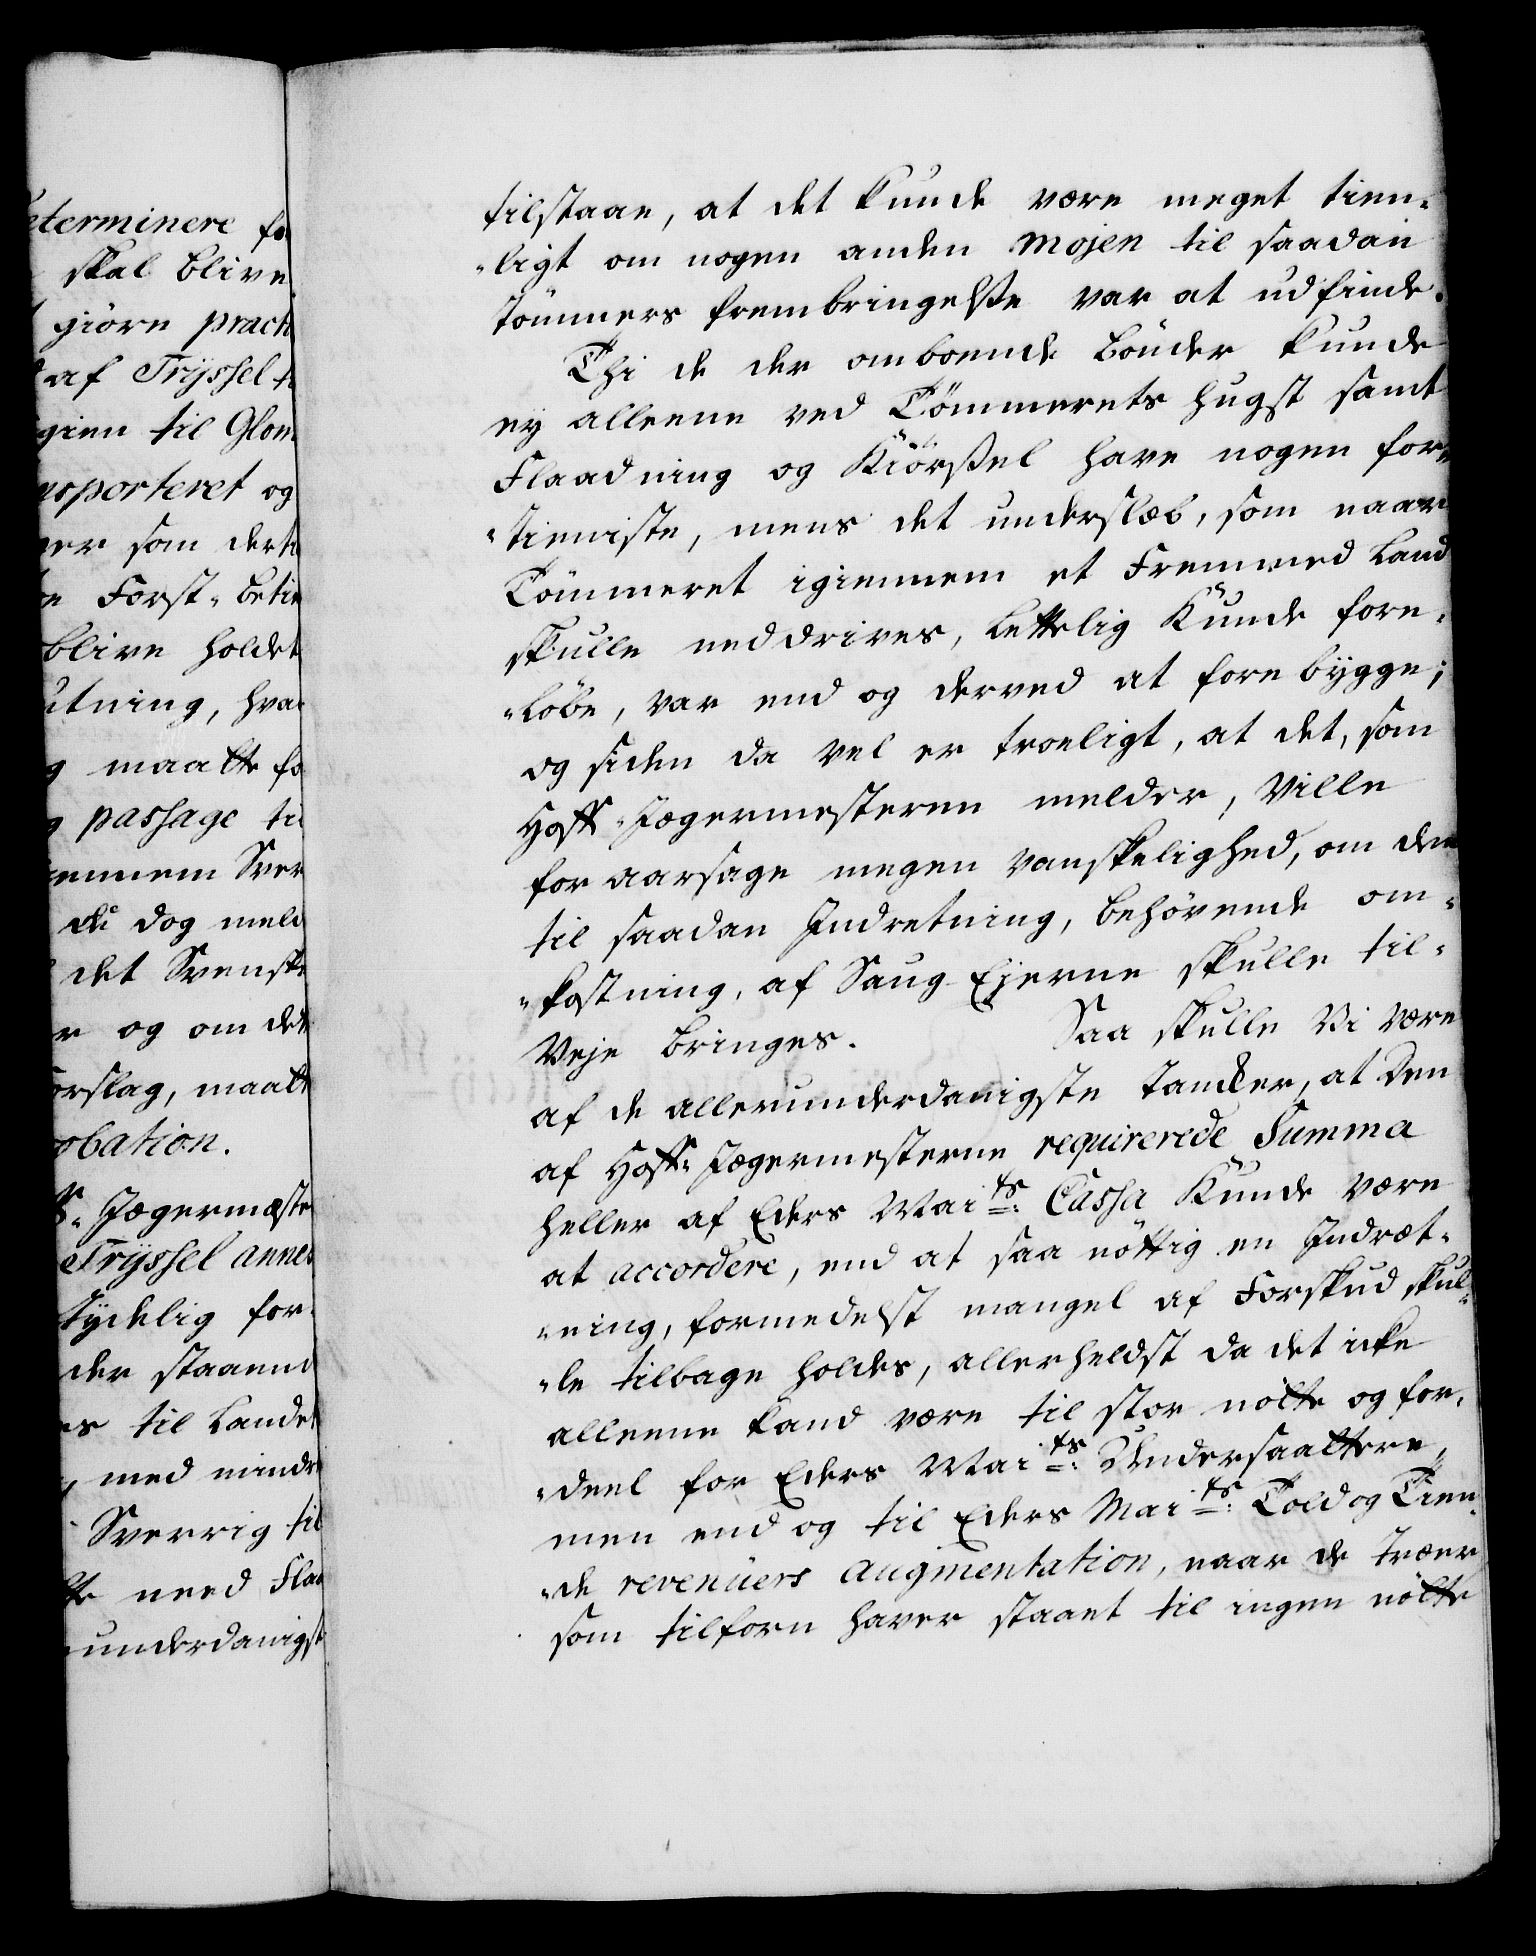 eterminere fo
skal blive
giöre pract
af Trÿssel t
gien til Glom
nsporteret og
er som dert
e Forst-betie
blive holdet
utning, hva
maatte fo
passage ti
iennem Sver
du dog meld
det Svensk
r og om det
orslag, maatt
obation.
Jægermeste
Trÿssel annes
tydelig for
der staaend
es til Landet
med mindr
Sverrig til
need Flaa
underdanigst
tilstaae, at det kunde være meget tien-
-ligt om nogen anden mojen til saadan
Tömmers frembringelße var at udfinde.
Thi de der omboende bönder kunde
ey alleene ved Tömmerets hugst samt
Flaadning og Kiörßel have nogen for-
-tieniste, mens det underslæb, som naar
Tömmeret igiennem et Fremmed Land
skulle neddrives, lettelig Kunde fore-
-löbe, var end og derved at fore bygge;
og siden da vel er troeligt, at det, som
Hoff-Jægermesteren melder, Ville
for aarsage megen vanskelighed, om den
til saadan Indretning, behövende om-
-kostning, af Saug-Ejerne skulle til-
Veje bringes. Saa skulle Vi være
af de allerunderdanigste tancker, at den
af Hoff-Jægermesterne requirerede Summa
heller af Eders Maits: Cassa Kunde være
at accordere, end at saa nöttig en Indræt-
-ning, formedelst mangel af Forskud skul-
-le tilbage holdes, allerheldst da det icke
alleene kand være til stor nötte og for-
-deel for Eders Maits: Undersaattere,
men end og til Eders Maits: Told og Tien-
-de revenüers augmentation, naar de Træer
som tilforn haver staaet til ingen nötte